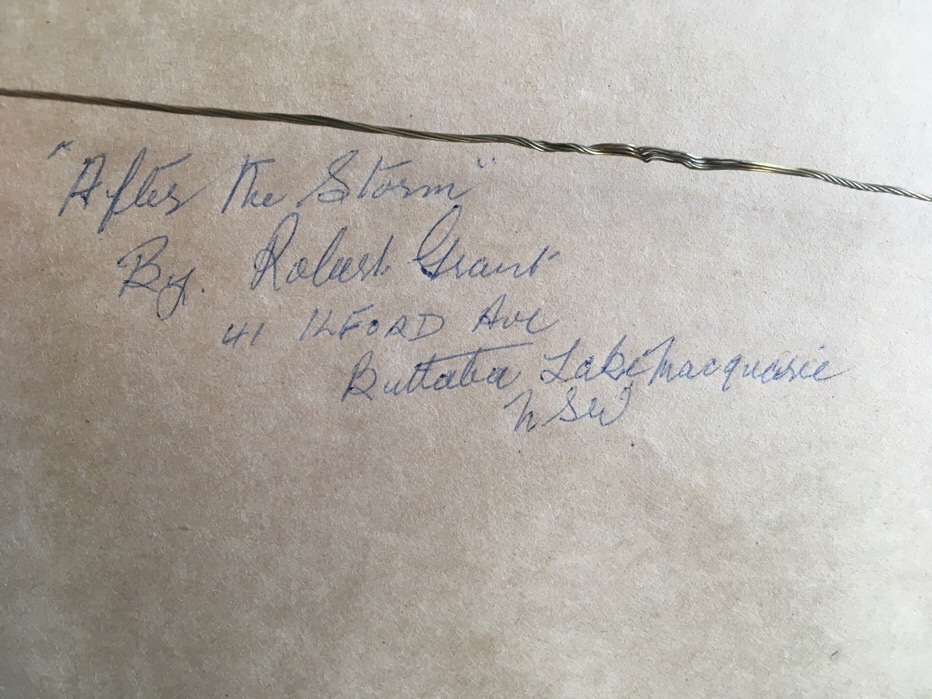 "After The Storm"
By. Robert Grant
41 ILFORD Ave
Buttaba Lake Macquarie
NSW